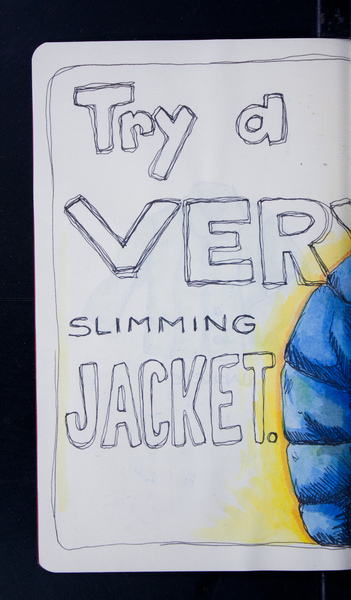 Try a
VERY
SLIMMING
JACKET.